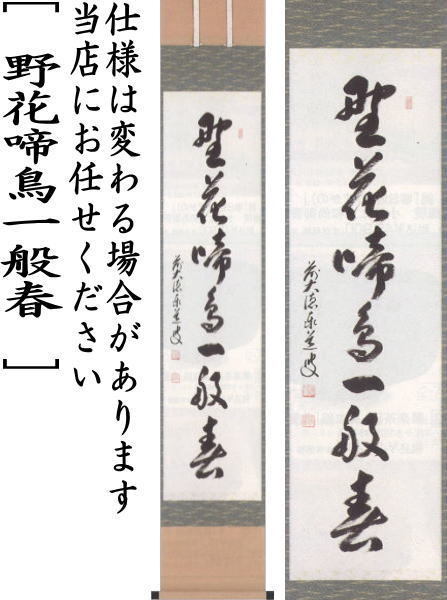 仕様は変わる場合があります
当店にお任せください
[ 野花啼鳥一般春 ]
野花啼鳥一般春
野花啼鳥一般春